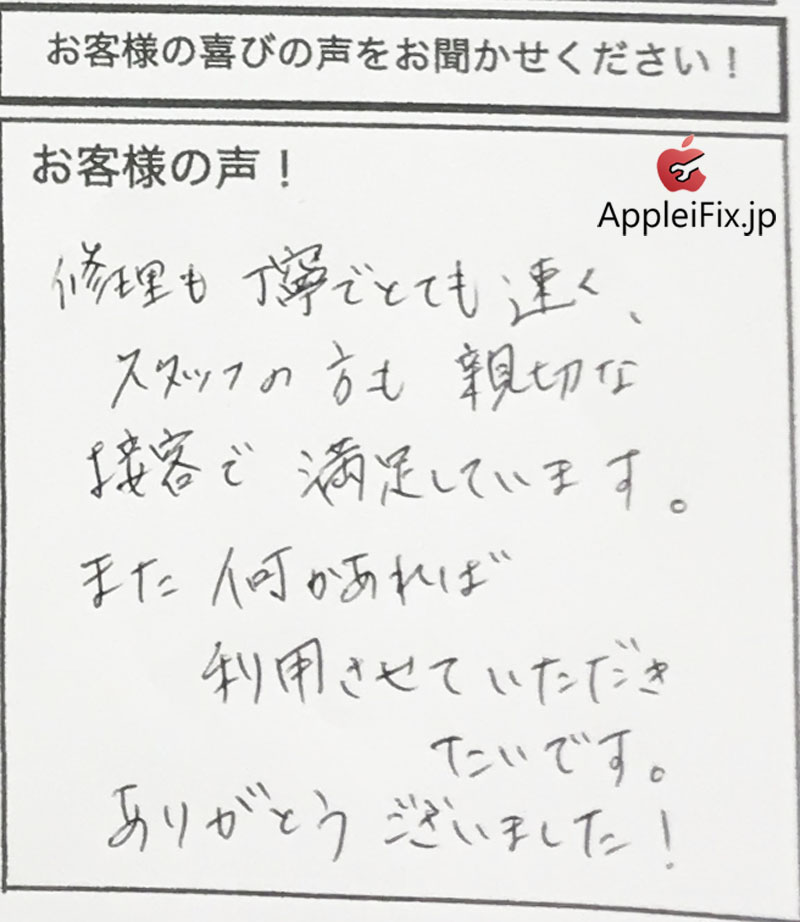 お客様の喜びの声をお聞かせください！
お客様の声！
AppleiFix.jp
修理も丁寧でとても速く、
スタッフの方も親切な
接客で満足しています。
また何かあれば
利用させていただき
たいです。
ありがとうございました！